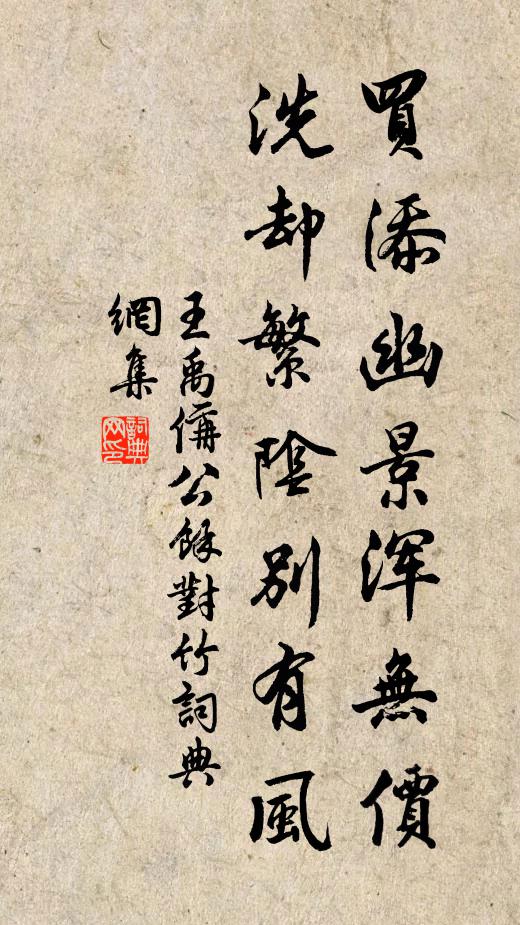 買添幽景渾無價
洗却繁陰別有風
王禹偁公餘對竹詞典
網集
詞典網印